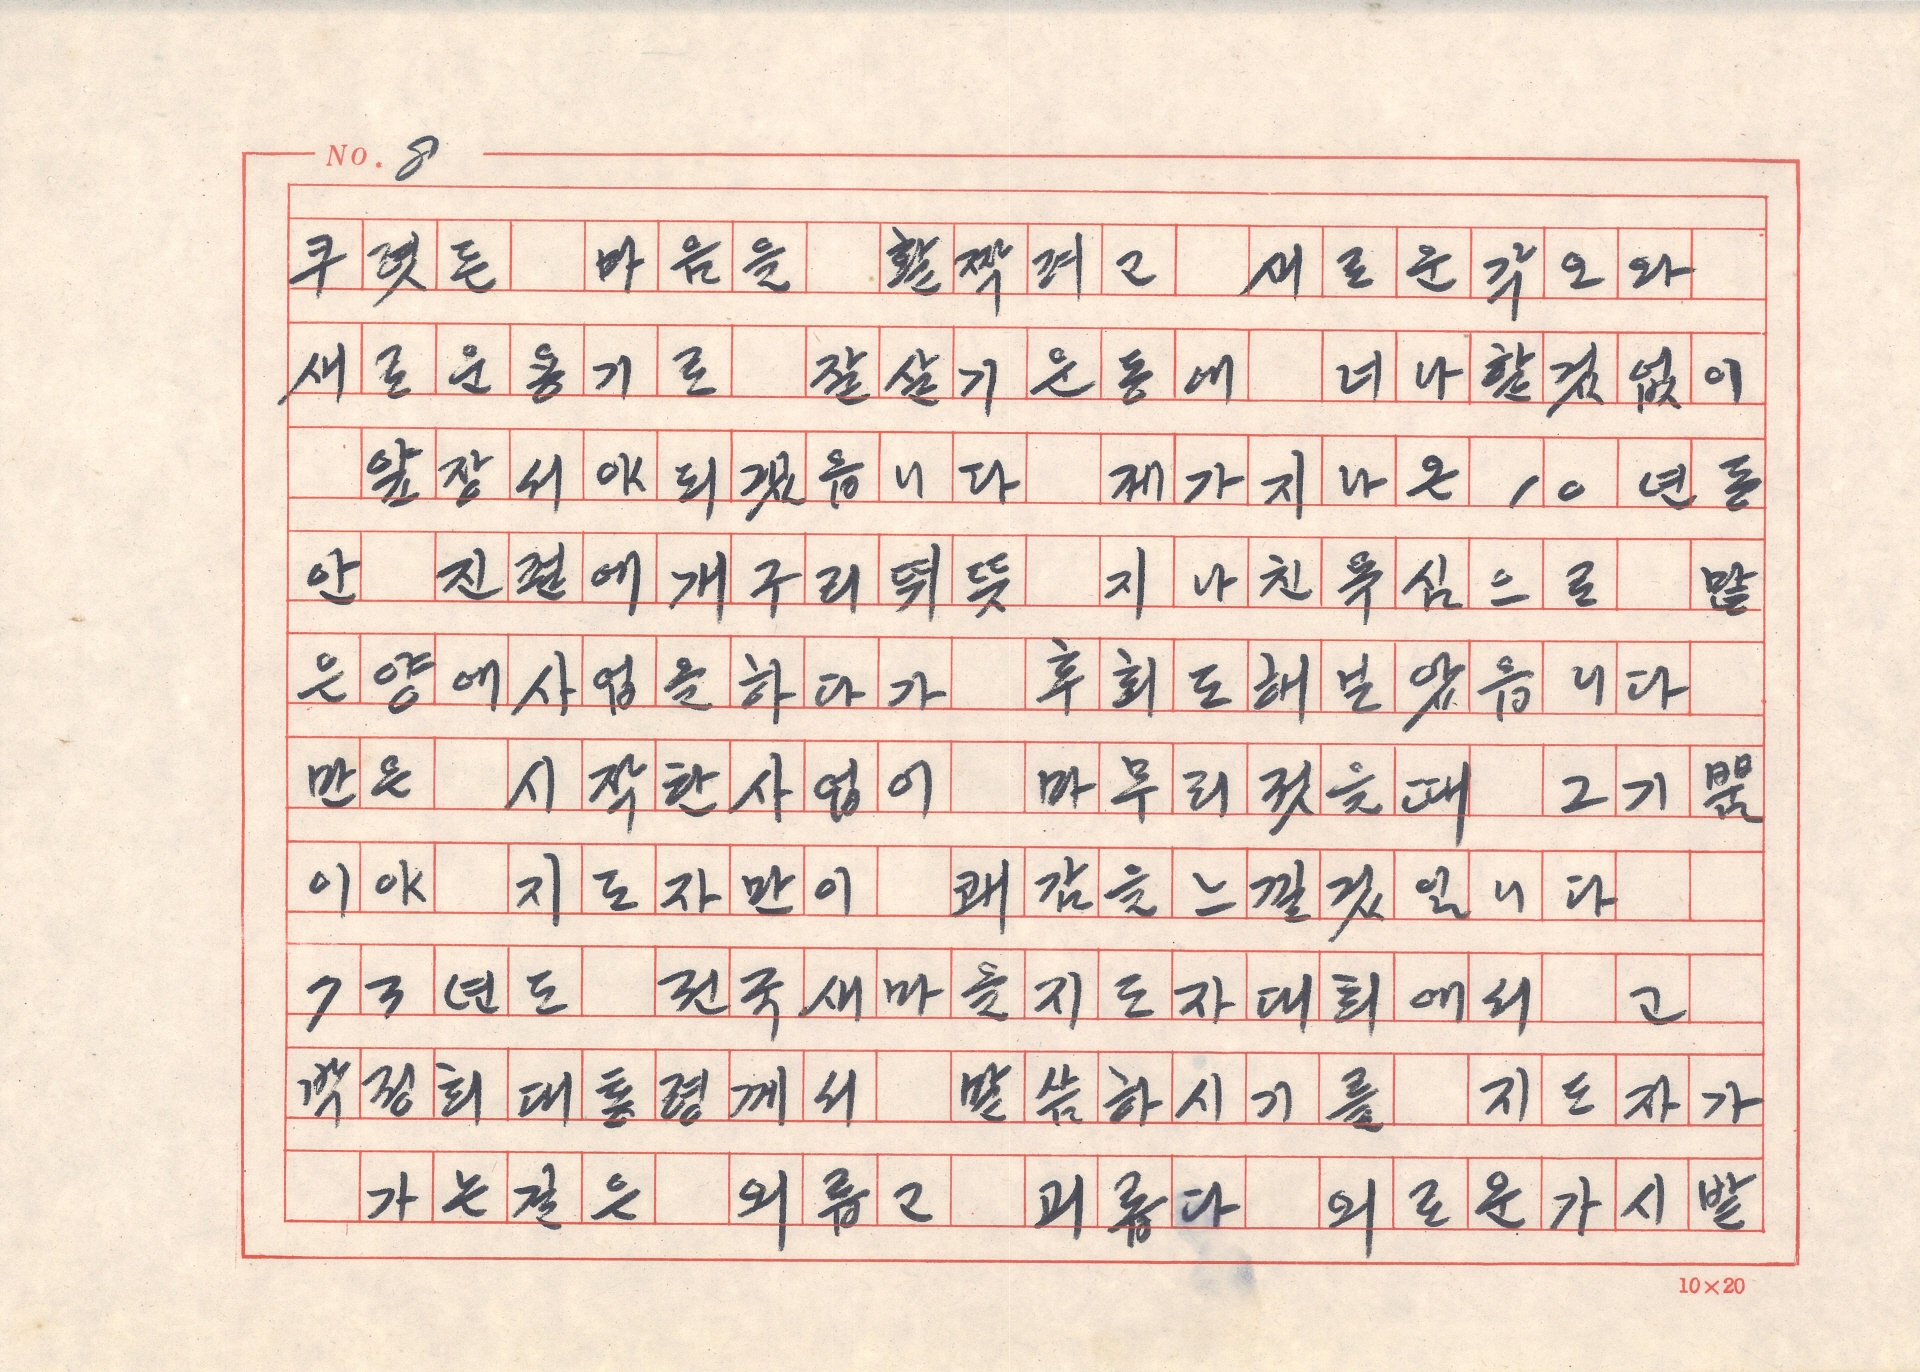 No. 8
쿠렷든 마음을 활짝려고 새로운각오와
새로운용기로 잘살기운동에 너나할겄없이
앞장서야되겠읍니다 제가지나온 10년동
안 진결에개구리뛰뜻 지나친욕심으로 많
은양에사업을하다가 후회도해보았읍니다
만은 시작한사업이 마무리젓을때 그기뿜
이야 지도자만이 쾌감을느낄겄입니다
73년도 전국새마을지도자대회에서 고
박정희대통령께서 말씀하시기를 지도자가
가는길은 외롭고 괴롭다 외로운가시밭
10×20